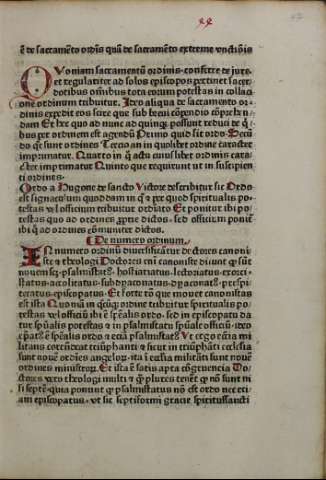 ē de sacramēto ordīs quā de sacramēto extreme vnctiōis
QVoniam sacramentum ordinis conferre de iure
et regulariter ad solos episcopos pertinet sacer-
dotibus omnibus tota eorum potestas in collaci
one ordinum tribuitur. Ideo aliqua de sacramento or-
dinis expedit eos scire que sub breui cōpendio cōprehē
dam Et hec quo ad nunc ad quinqꝫ possunt reduci de qͥ
bus per ordinem est agendū Primo quid sit ordo. Secū
do qͦt sunt ordines Tercio an in quolibet ordine caracter
imprimatur. Quarto in qͦ actu cuiuslibet ordinis cara-
cter imprimatur Quinto que requirunt̄ ut in suscipien
ti ordines.
ORdo a Hugone de sancto Victore describitur sic Ordo
est signaculum quoddam in qͦ et per quod spiritualis po-
testas vel officium tribuitur ordinato Et ponitur ibi po-
testas quo ad ordines proprie dictos. sed officium ponit̄
ibi qͦ ad ordines cōmuniter dictos.
De numero ordinum.
IN numero ordinū diuersificātur doctores canoni
ste et theologi Doctores eni canoniste dicunt qͦ sūt
nouem scꝫ psalmistatꝰ. hostiariatus. lectoriatus. exorci
status. acolitatus. subdyaconatꝰ. dyaconatꝰ. presbi-
teratus episcopatus. Et forte rō que mouet canonistas
est ista Quoniā in qͦcūqꝫ ordine tribuitur spiritualis po-
testas vel officiū ibi ē spēalis ordo. sed in episcopatu da
tur spūalis potestas et in psalmistatu spūale officiū. ideo
episcopatꝰ ē spēalis ordo et eciā psalmistatꝰ Ut ergo ecclesia mi
litans correspondeat triumphanti et sicut in triumphāti ecclesia
sunt nouē ordines angeloꝝ. ita ī ecclesia militāti sunt nouē
ordines ministroꝝ. Et ista ē satis apta cōgruencia Do-
ctores vero theologi multi et qͣsi plures tenent qͦ nō sunt ni
si septē. quia ponunt qͦ psalmistatus nō est ordo nec eci-
am episcopatus. vt sic septiformi gracie spiritussancti